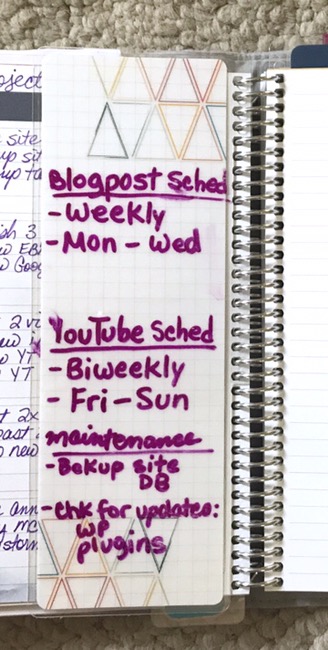 Blogpost Sched
- Weekly
- Mon - Wed
YouTube Sched
- Biweekly
- Fri - Sun
maintenance
- BckUp site
DB
- chk for updates:
wp
plugins
oject
site
up sit
up
3
EB
Goog
2
YT
YT
2x
past
new
Ann
MC
storm